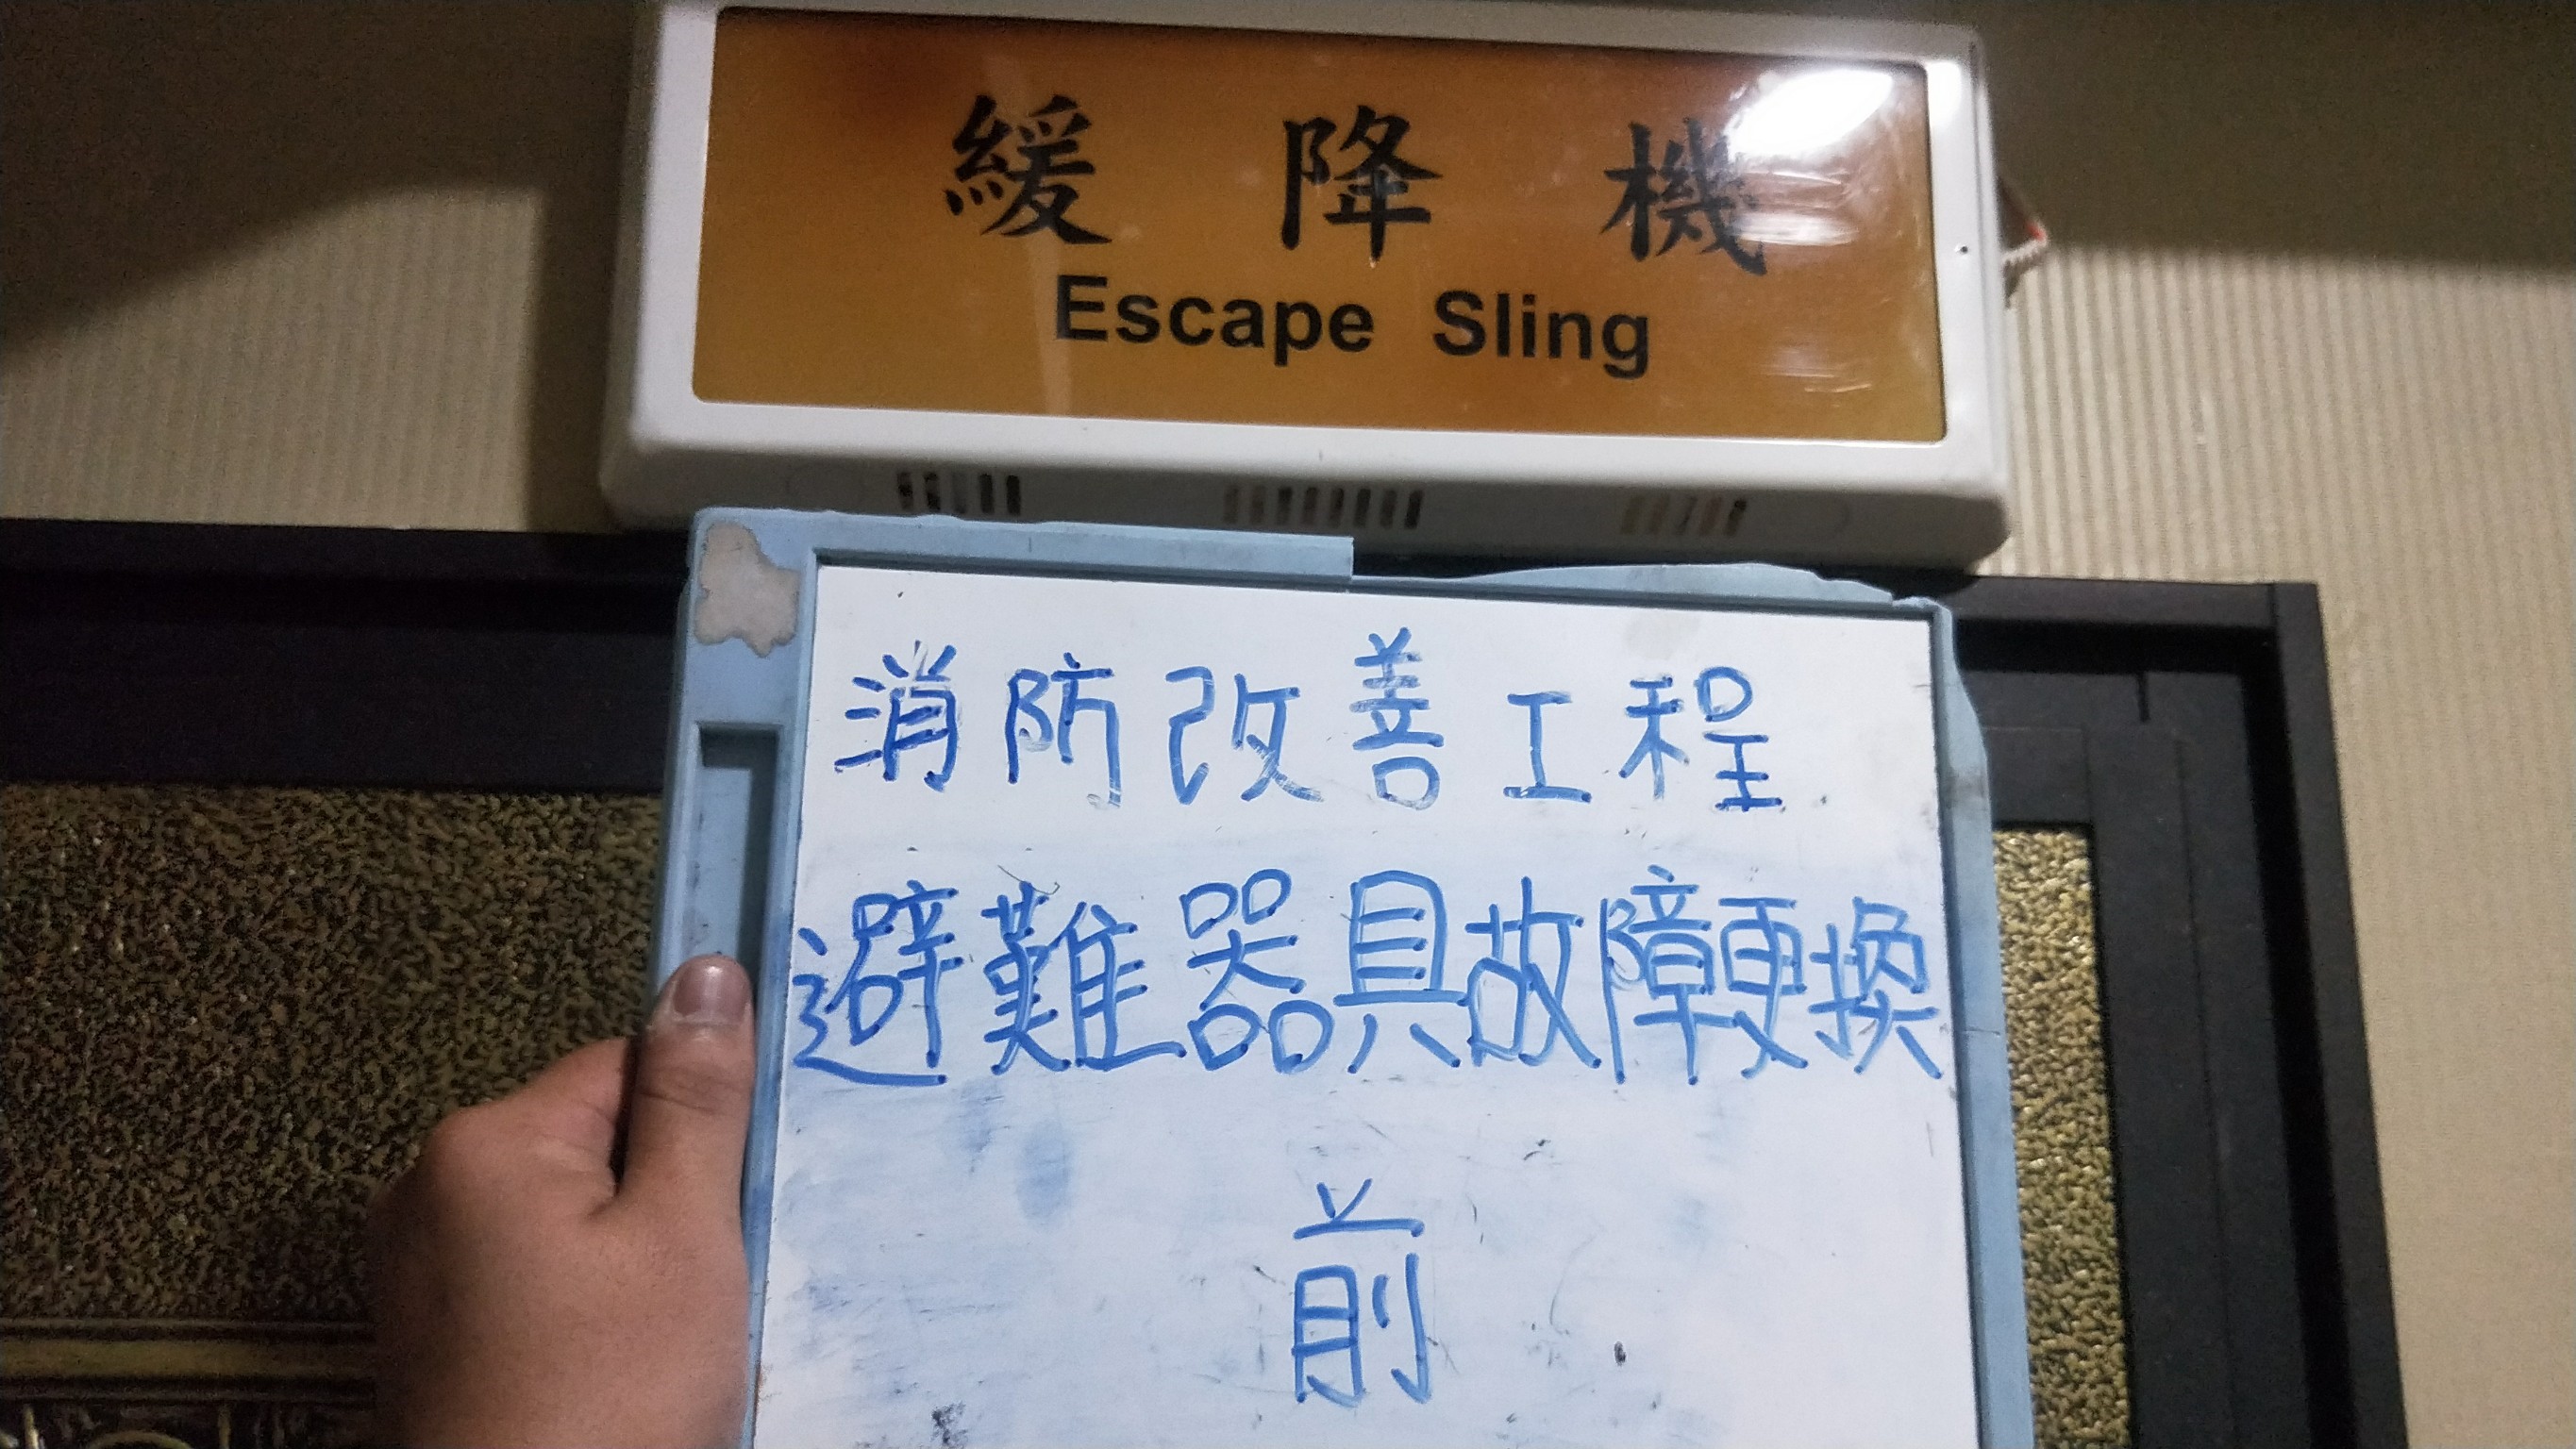 緩降機
Escape Sling
消防改善工程
避難器具故障更換
前